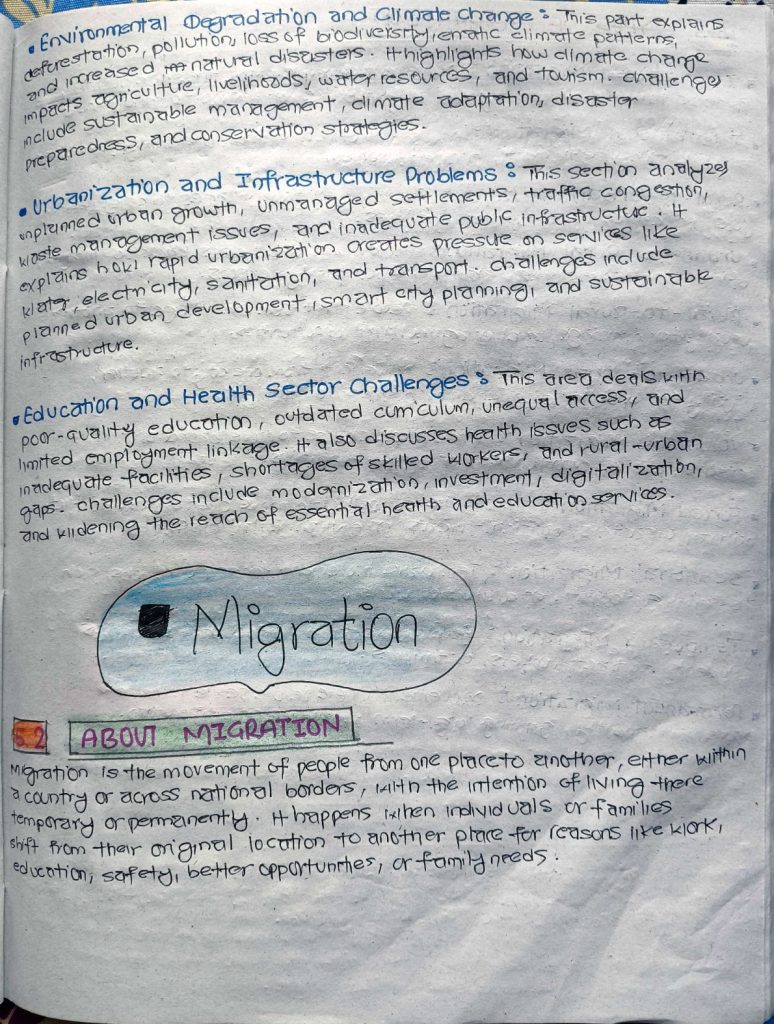 • Environmental Degradation and Climate Change : This part explains
deforestation, pollution, loss of biodiversity, erratic climate patterns,
and increased natural disasters. It highlights how climate change
impacts agriculture, livelihoods, water resources, and tourism. challenges
include sustainable management, climate adaptation, disaster
preparedness, and conservation strategies.
• Urbanization and Infrastructure Problems : This section analyzes
unplanned urban growth, unmanaged settlements, traffic congestion,
waste management issues, and inadequate public infrastructure. It
explains how rapid urbanization creates pressure on services like
water, electricity, sanitation, and transport. challenges include
planned urban development, smart city planning, and sustainable
infrastructure.
• Education and Health Sector Challenges : This area deals with
poor-quality education, outdated curriculum, unequal access, and
limited employment linkage. It also discusses health issues such as
inadequate facilities, shortages of skilled workers, and rural-urban
gaps. challenges include modernization, investment, digitalization,
and widening the reach of essential health and education services.
Migration
5.2 ABOUT MIGRATION
Migration is the movement of people from one place to another, either within
a country or across national borders, with the intention of living there
temporary or permanently. It happens when individuals or families
shift from their original location to another place for reasons like work,
education, safety, better opportunities, or family needs.